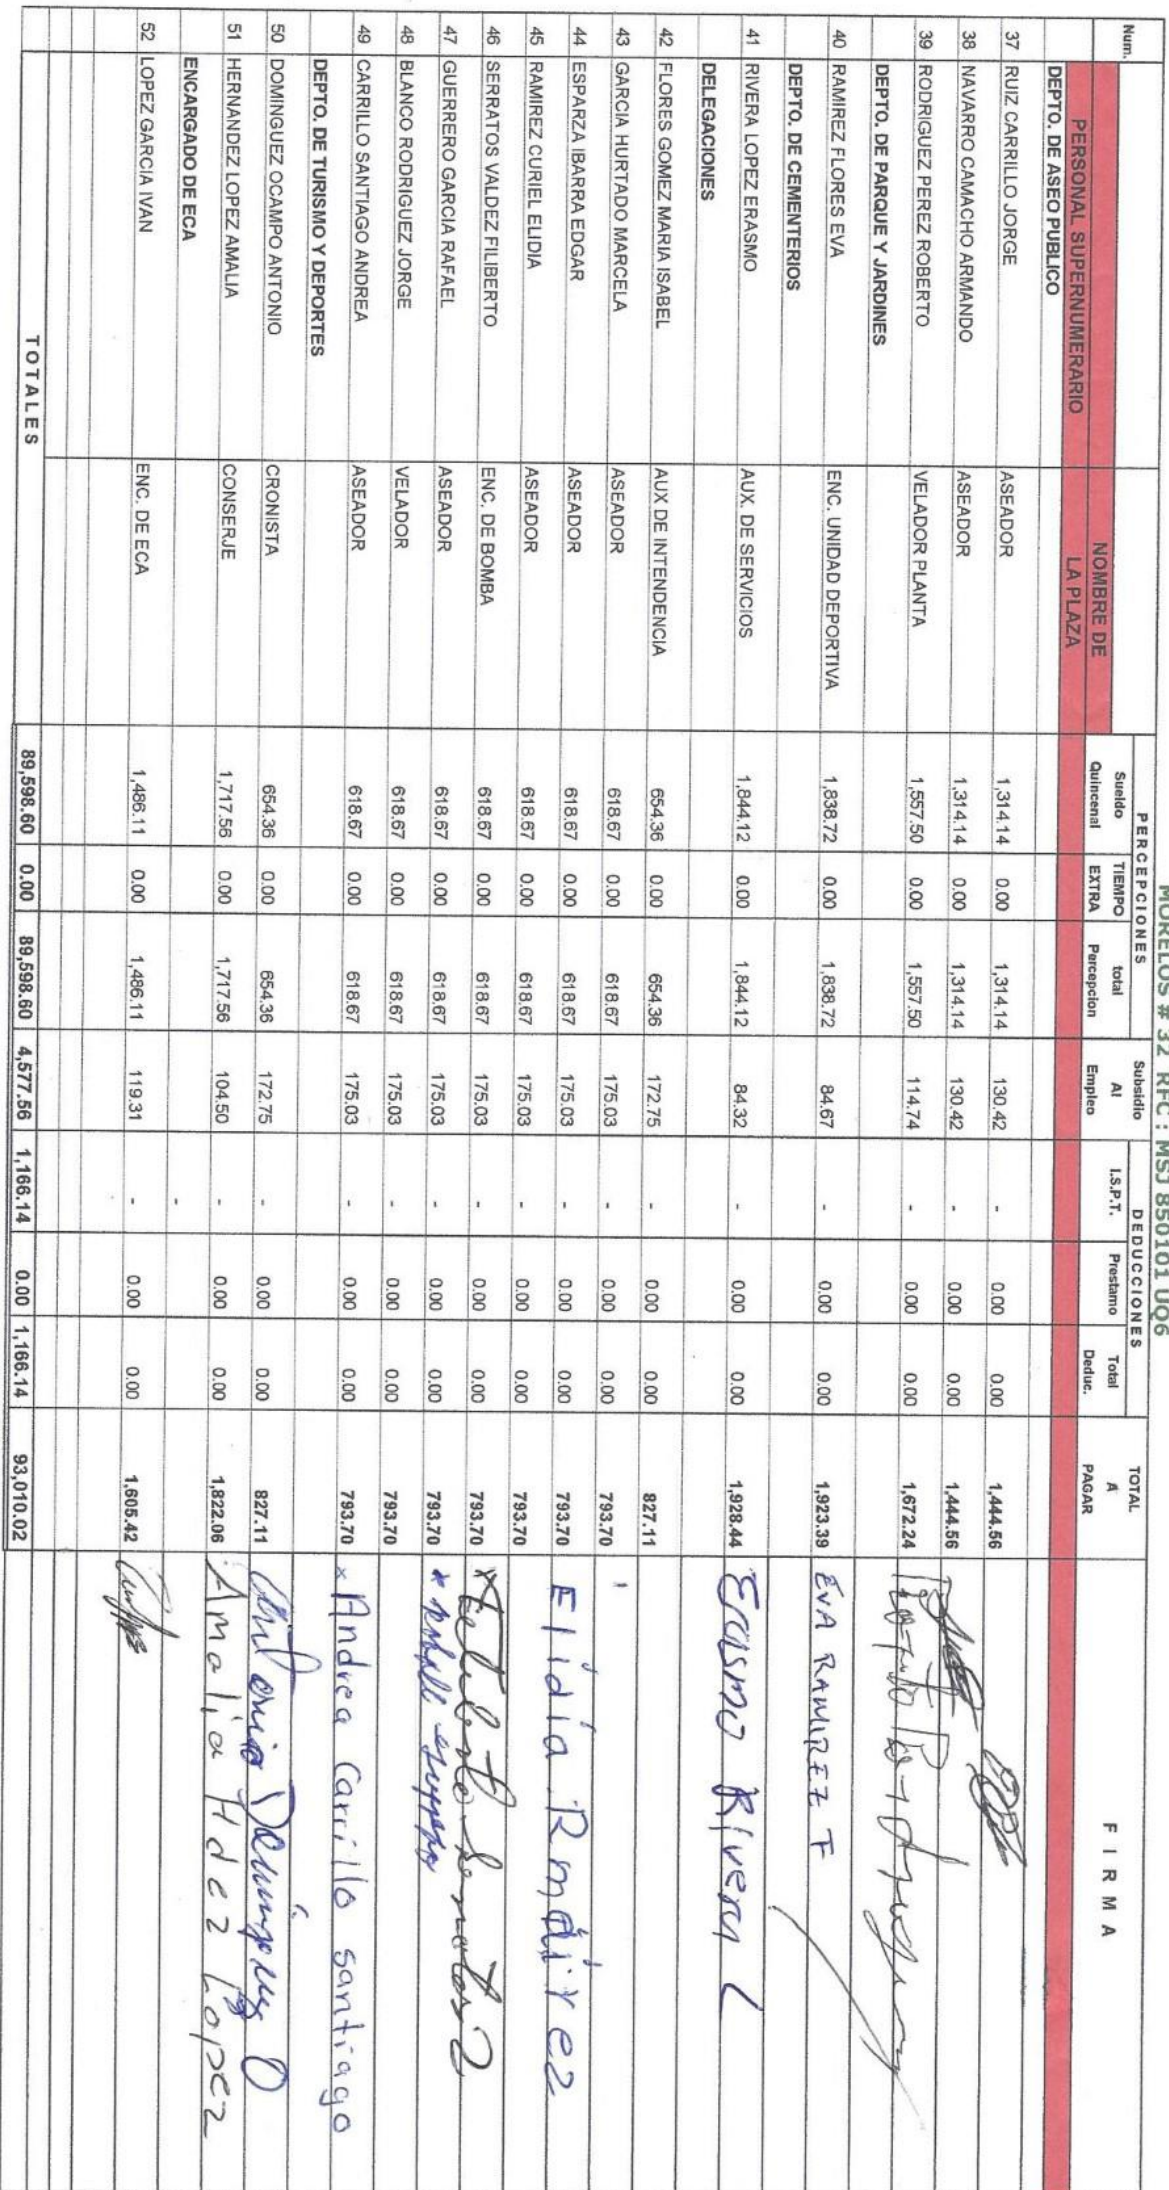 MORELOS # 32 RFC: MSJ 850101 UQ6
PERCEPCIONES DEDUCCIONES
Num. PERSONAL SUPERNUMERARIO NOMBRE DE LA PLAZA Sueldo Quincenal TIEMPO EXTRA total Percepcion Subsidio Al Empleo I.S.P.T. Prestamo Total Deduc. TOTAL A PAGAR FIRMA
DEPTO. DE ASEO PUBLICO
37 RUIZ CARRILLO JORGE ASEADOR 1,314.14 0.00 1,314.14 130.42 - 0.00 0.00 1,444.56
38 NAVARRO CAMACHO ARMANDO ASEADOR 1,314.14 0.00 1,314.14 130.42 - 0.00 0.00 1,444.56
39 RODRIGUEZ PEREZ ROBERTO VELADOR PLANTA 1,557.50 0.00 1,557.50 114.74 - 0.00 0.00 1,672.24
DEPTO. DE PARQUE Y JARDINES
40 RAMIREZ FLORES EVA ENC. UNIDAD DEPORTIVA 1,838.72 0.00 1,838.72 84.67 - 0.00 0.00 1,923.39 EVA RAMIREZ F
DEPTO. DE CEMENTERIOS
41 RIVERA LOPEZ ERASMO AUX. DE SERVICIOS 1,844.12 0.00 1,844.12 84.32 - 0.00 0.00 1,928.44 Erasmo Rivera L
DELEGACIONES
42 FLORES GOMEZ MARIA ISABEL AUX DE INTENDENCIA 654.36 0.00 654.36 172.75 - 0.00 0.00 827.11
43 GARCIA HURTADO MARCELA ASEADOR 618.67 0.00 618.67 175.03 - 0.00 0.00 793.70
44 ESPARZA IBARRA EDGAR ASEADOR 618.67 0.00 618.67 175.03 - 0.00 0.00 793.70
45 RAMIREZ CURIEL ELIDIA ASEADOR 618.67 0.00 618.67 175.03 - 0.00 0.00 793.70 Elidia Rmáirez
46 SERRATOS VALDEZ FILIBERTO ENC. DE BOMBA 618.67 0.00 618.67 175.03 - 0.00 0.00 793.70
47 GUERRERO GARCIA RAFAEL ASEADOR 618.67 0.00 618.67 175.03 - 0.00 0.00 793.70
48 BLANCO RODRIGUEZ JORGE VELADOR 618.67 0.00 618.67 175.03 - 0.00 0.00 793.70
49 CARRILLO SANTIAGO ANDREA ASEADOR 618.67 0.00 618.67 175.03 - 0.00 0.00 793.70 x Andrea Carrillo santiago
DEPTO. DE TURISMO Y DEPORTES
50 DOMINGUEZ OCAMPO ANTONIO CRONISTA 654.36 0.00 654.36 172.75 - 0.00 0.00 827.11 Antonio Dominguez O
51 HERNANDEZ LOPEZ AMALIA CONSERJE 1,717.56 0.00 1,717.56 104.50 - 0.00 0.00 1,822.06 Amalia Hdez Lopez
ENCARGADO DE ECA -
52 LOPEZ GARCIA IVAN ENC. DE ECA 1,486.11 0.00 1,486.11 119.31 - 0.00 0.00 1,605.42
TOTALES 89,598.60 0.00 89,598.60 4,577.56 1,166.14 0.00 1,166.14 93,010.02